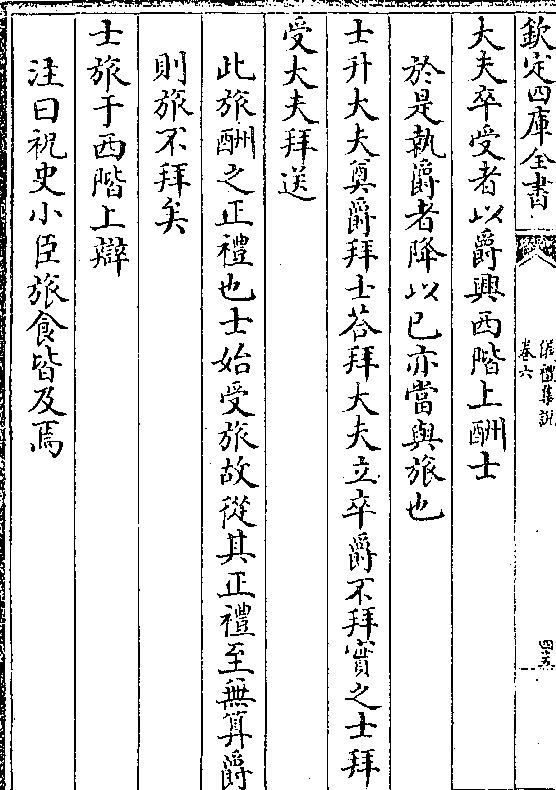 欽定四庫全書
儀禮集說
卷六
四五
大夫卒受者以爵興西階上酬士
於是執爵者降以已亦當與旅也
士升大夫奠爵拜士荅拜大夫立卒爵不拜實之士拜
受大夫拜送
此旅酬之正禮也士始受旅故從其正禮至無算爵
則旅不拜矣
士旅于西階上辯
注曰祝史小臣旅食皆及焉